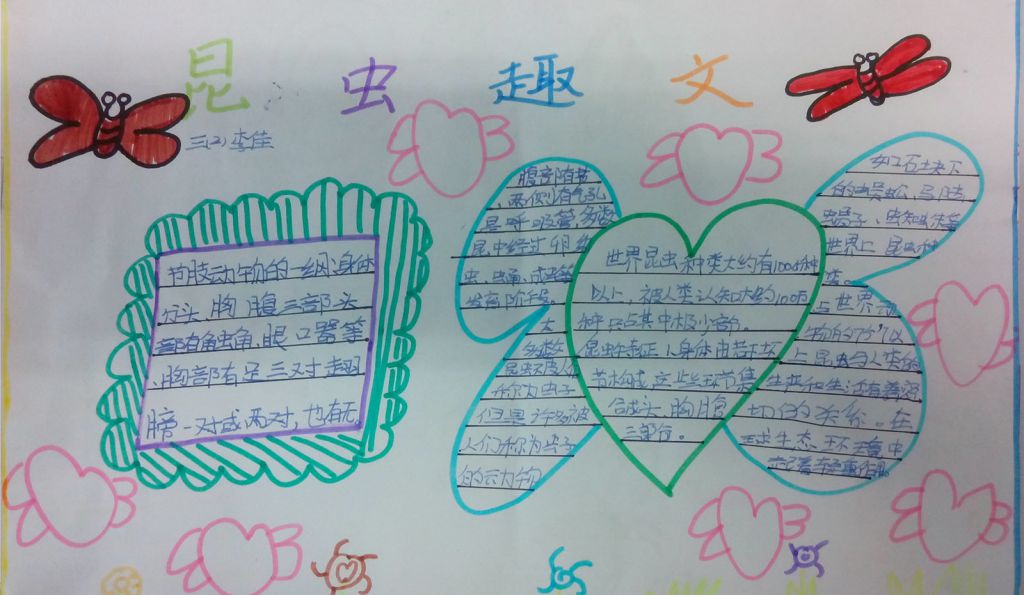 昆虫趣文
三(2)李佳
节肢动物的一纲,身体
分头、胸、腹三部,头
部有触角、眼、口器等。
胸部有足三对,翅
膀一对或两对,也有无
腹部有节
,两侧有气孔
是呼吸管,多数
昆虫经过卵、幼
虫、蛹、成虫等
发育阶段。
大
多数
昆虫不被人们
称为虫子
但是许多被
人们称为虫子
的动物
世界昆虫种类大约有1000种
以上,被人类认知大约100万
种只占其中极小部。
昆虫特征1.身体由若干环
节构成,这些环节集
合成头、胸、腹
三部分。
如石块下
世界上昆虫种
类。
与世界
上昆虫与人类
生举和生活有着密
切的关系。在
球生态环境中